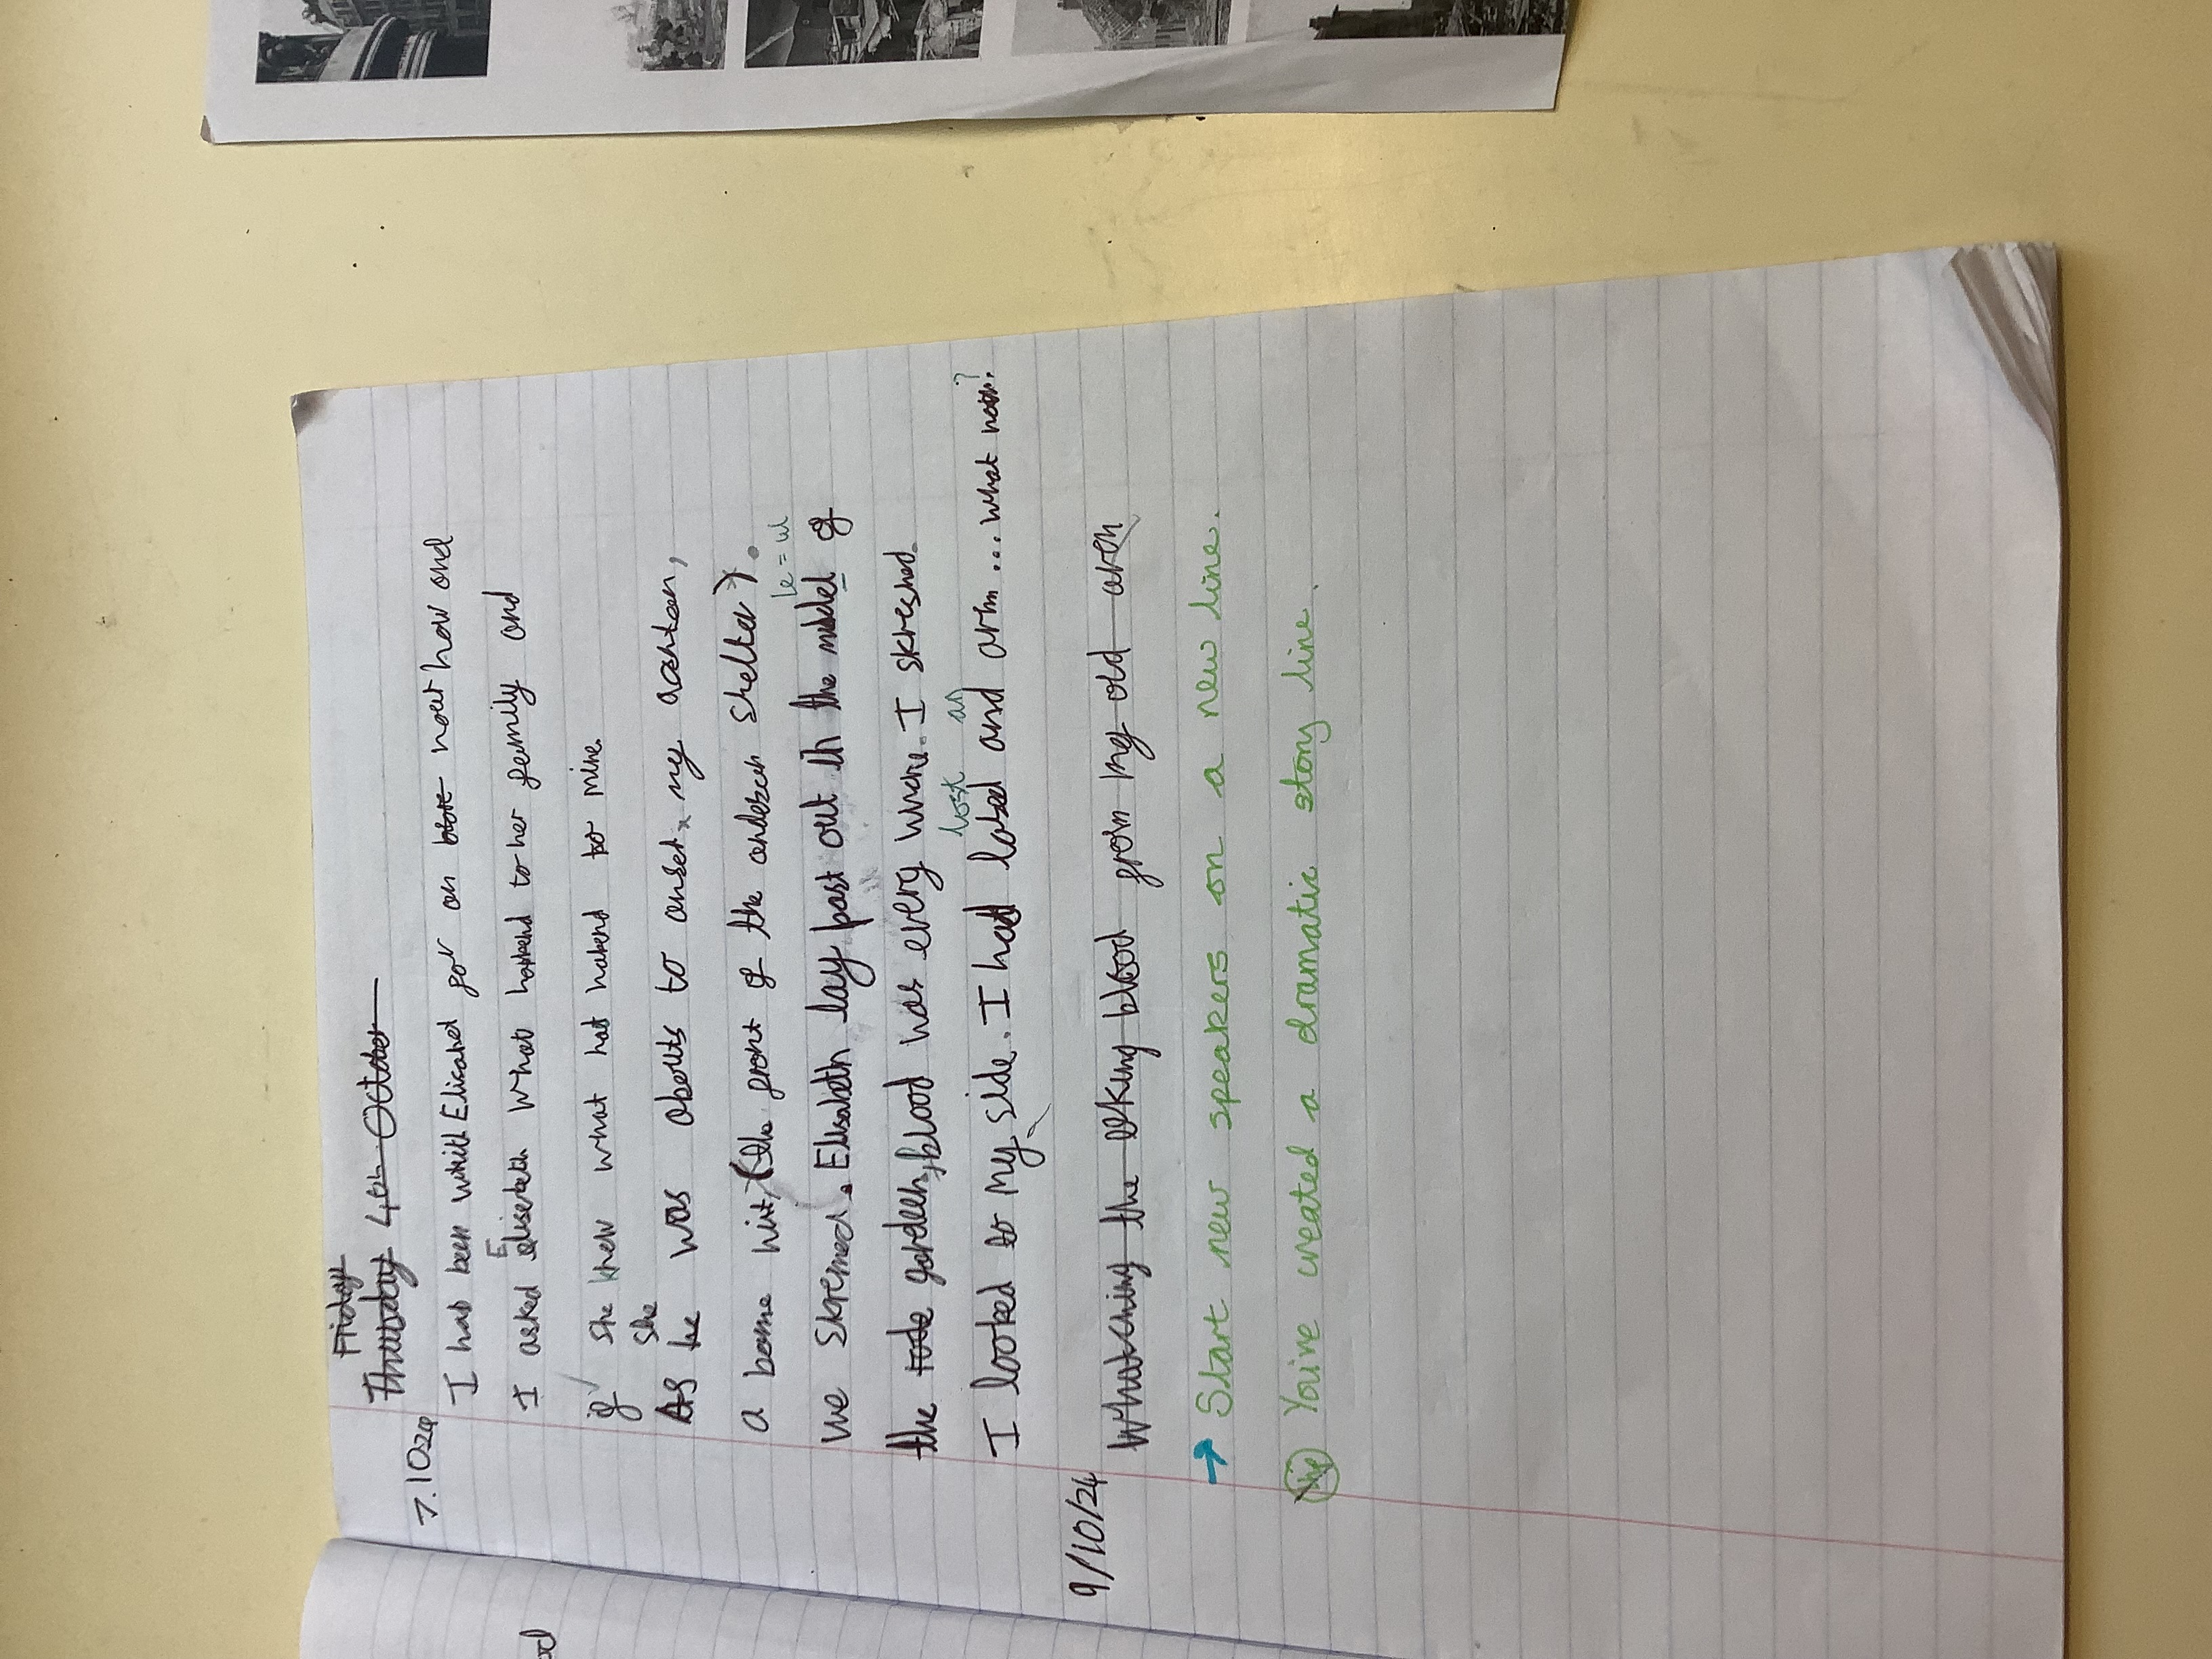 Friday
Thursday 4th October
7.10.24
I had been whith Elicabet for an nour how and
E
I asked elisebeth what happend to her family and
if she knew what had hapend to mine.
She
As he was abouts to anser my
a bome hit (the front of the andescn Shelta).
le = ul
we skremed. Elisabeth lay past out in the middel of
the rode gardeen, blood was every where. I skreshed.
lost an
I looked to my side. I had losed and arm ... what now?
9/10/24
Whatching the leking blood from my old arem
→ Start new speakers on a new line.
You've created a dramatic story line.